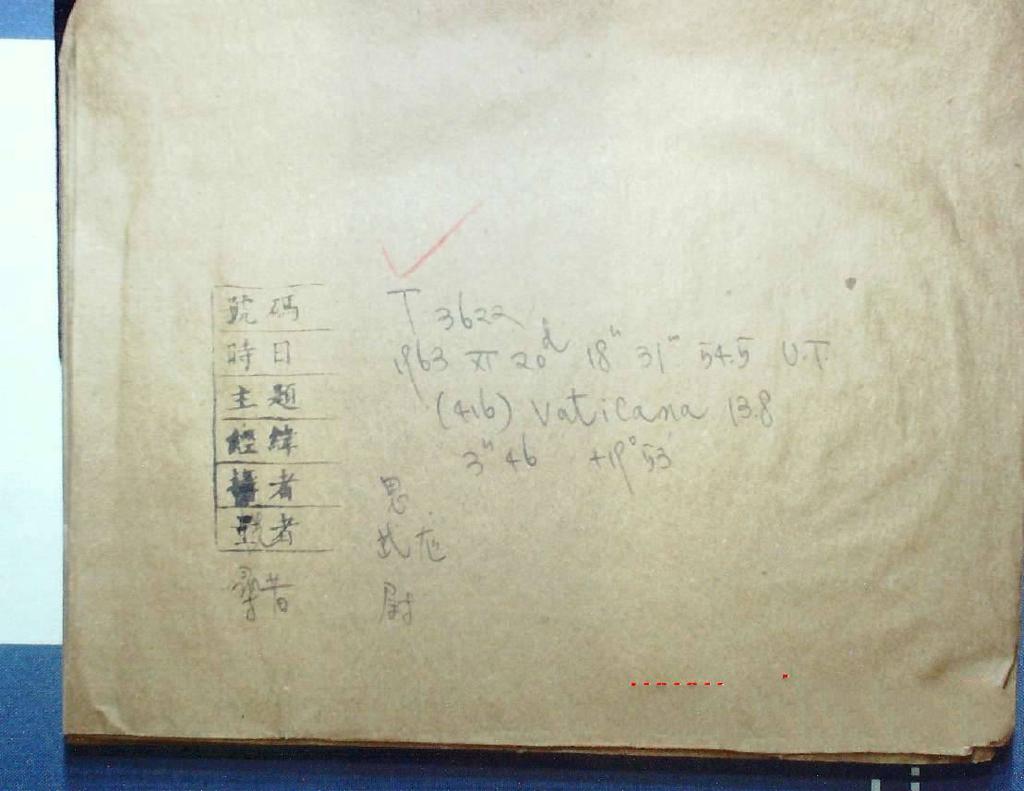 號碼 T 3622
時日 1963 XI 20d 18h 31m 54.5 U.T.
主題 (416) Vaticana 13.8
經緯 3h 46 +19° 53'
者 思
者 武
尋者 尉